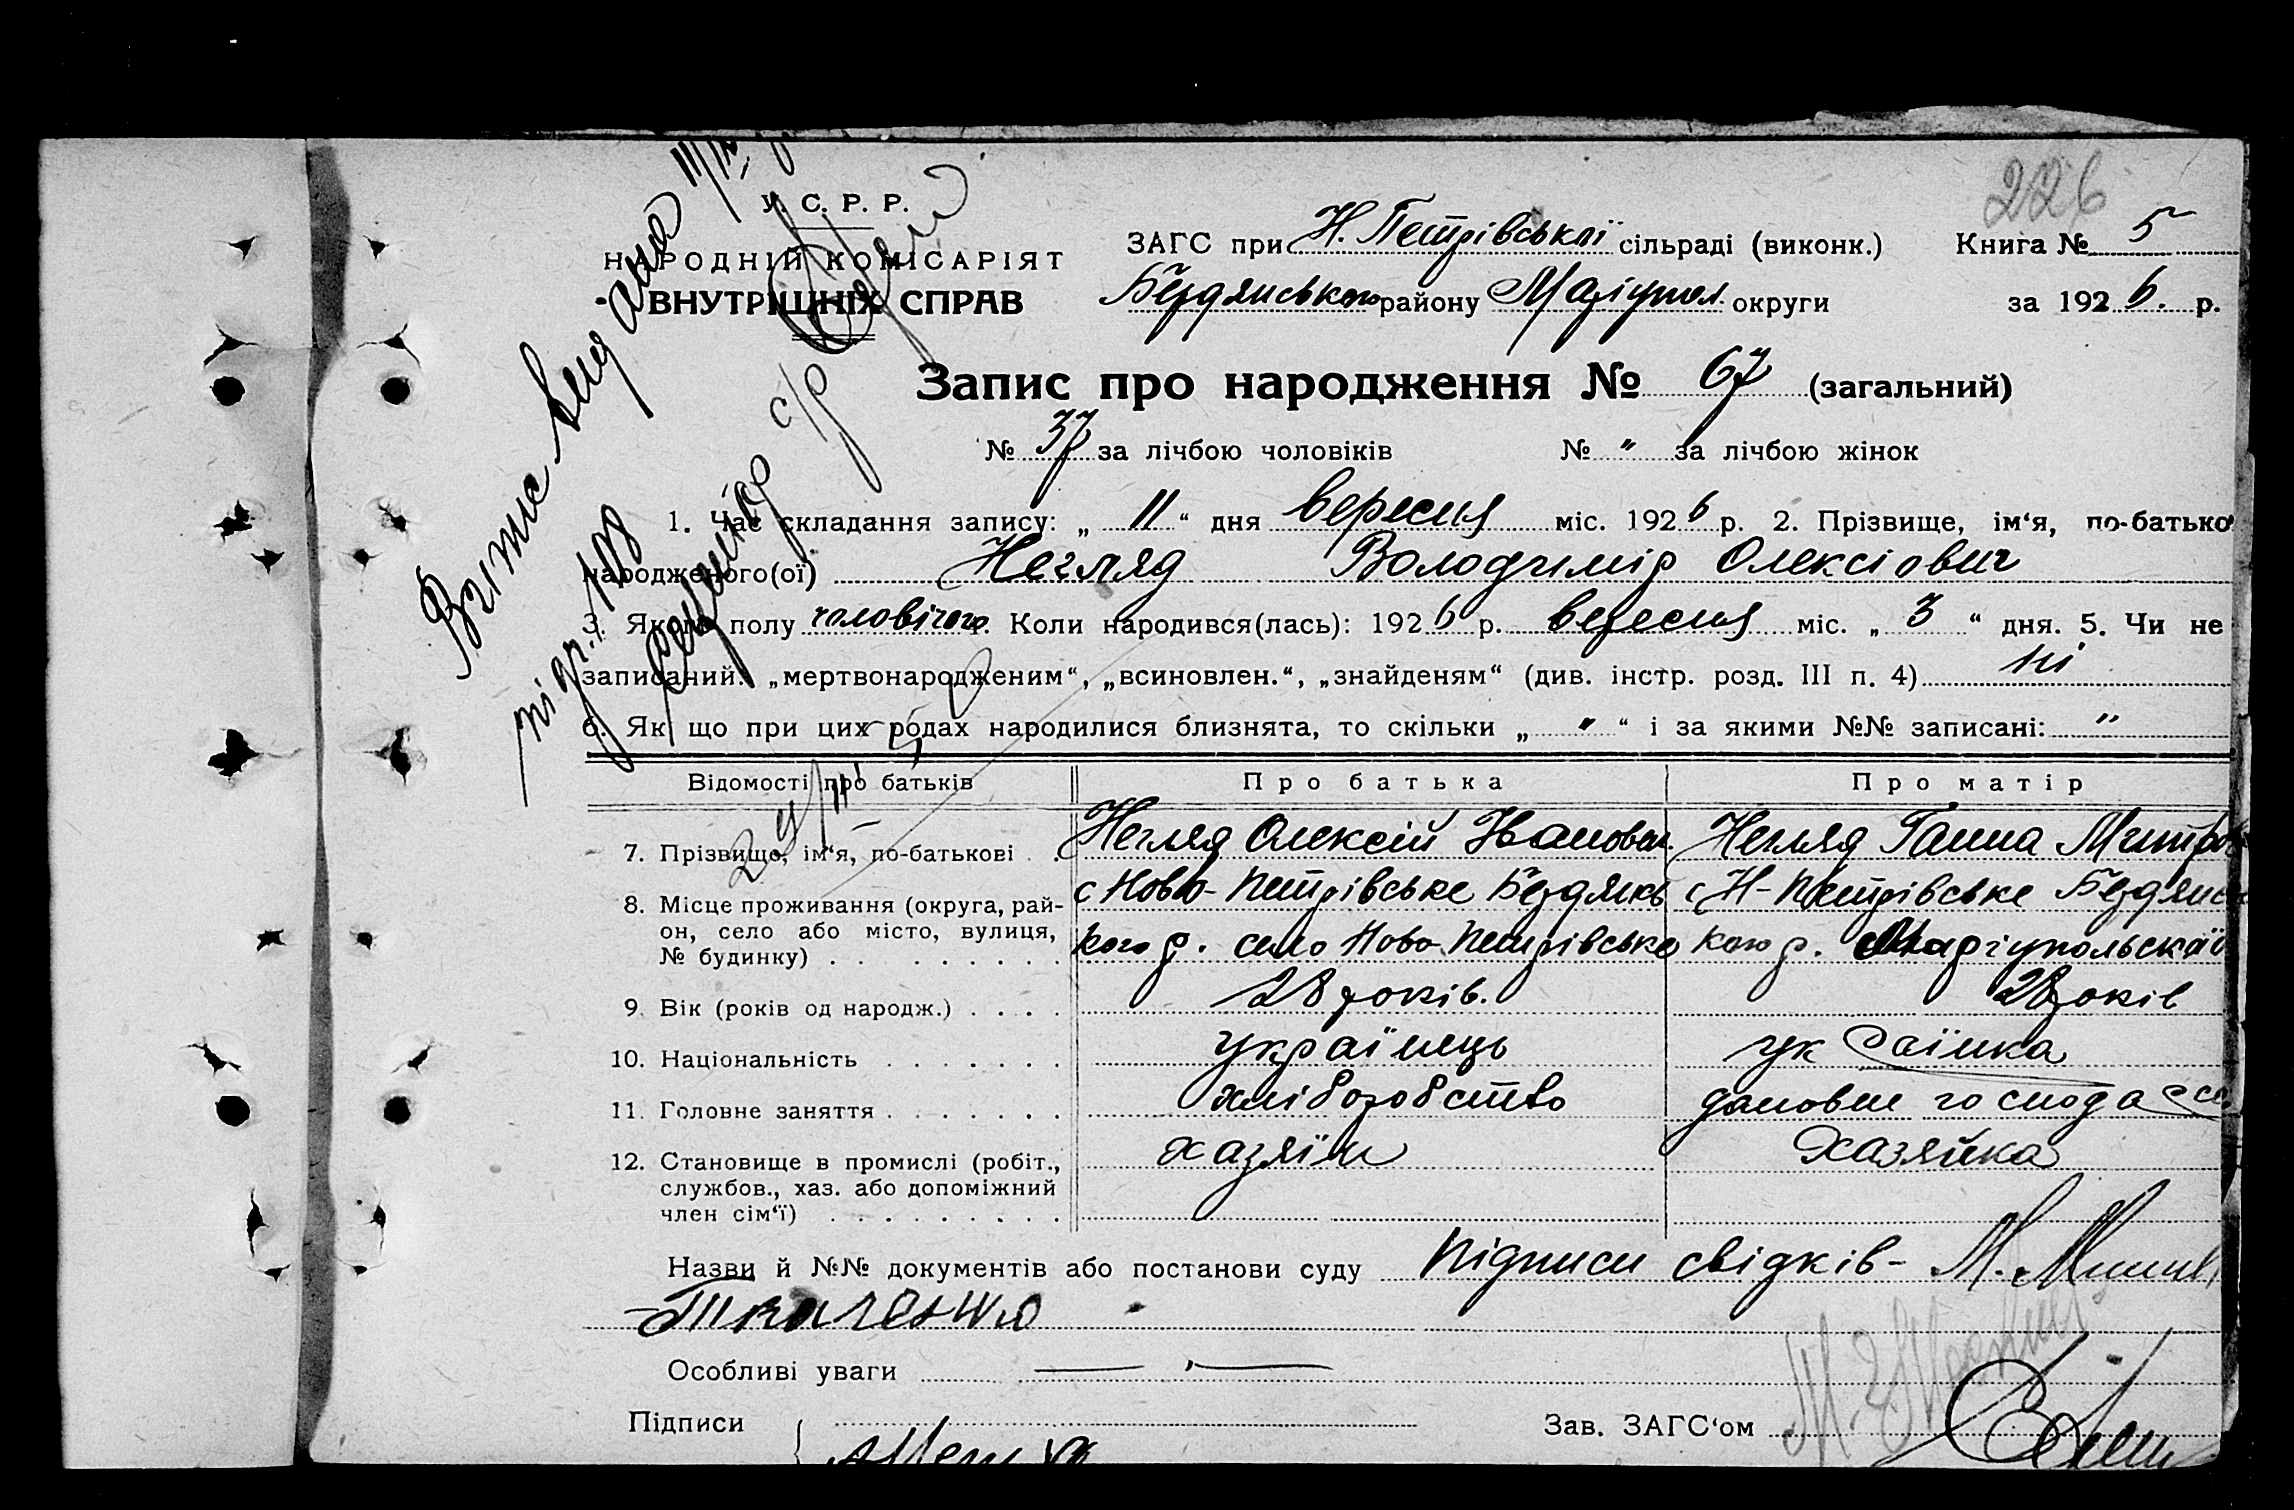 226
У. С. Р. Р.
НАРОДНІЙ КОМІСАРІЯТ
ВНУТРІШНІХ СПРАВ
ЗАГС при Н. Петрівської сільраді (виконк.) Книга № 5
Бердянського району Маріупол. округи за 1926. р.
Запис про народження № 67 (загальний)
№ 37 за лічбою чоловіків № " за лічбою жінок
1. Час складання запису: „ 11 “ дня вересня міс. 1926 р. 2. Прізвище, ім‘я, по-батькові
народженого(ої) Негляд Володимір Олексіович
3. Якого полу чоловічого. Коли народився(лась): 1926 р. вересня міс. „ 3 “ дня. 5. Чи не
записаний: „мертвонародженим“, „всиновлен.“, „знайденям“ (див. інстр. розд. III п. 4) ні
6. Як що при цих родах народилися близнята, то скільки „ " “ і за якими №№ записані: "
Відомості про батьків Про батька Про матір
7. Прізвище, ім‘я, по-батькові . . Негляд Олексій Іванович. Негляд Ганна Митров
8. Місце проживання (округа, рай- с Ново-Петрівське Бердянсь с Н-Петрівське Бердянсь
он, село або місто, вулиця, кого р. село Ново-Петрівське кого р. Маріупольскаї
№ будинку) . . . . . . . . .
9. Вік (років од народж.) . . . . 28 років. 28 років
10. Національність . . . . . . . українець українка
11. Головне заняття . . . . . . . хліборобство домовне господарс
12. Становище в промислі (робіт., хазяїн хазяйка
службов., хаз. або допоміжний
член сім‘ї) . . . . . . . . .
Назви й №№ документів або постанови суду Підписи свідків - М.
Ткаченко
Особливі уваги
Підписи Зав. ЗАГС‘ом